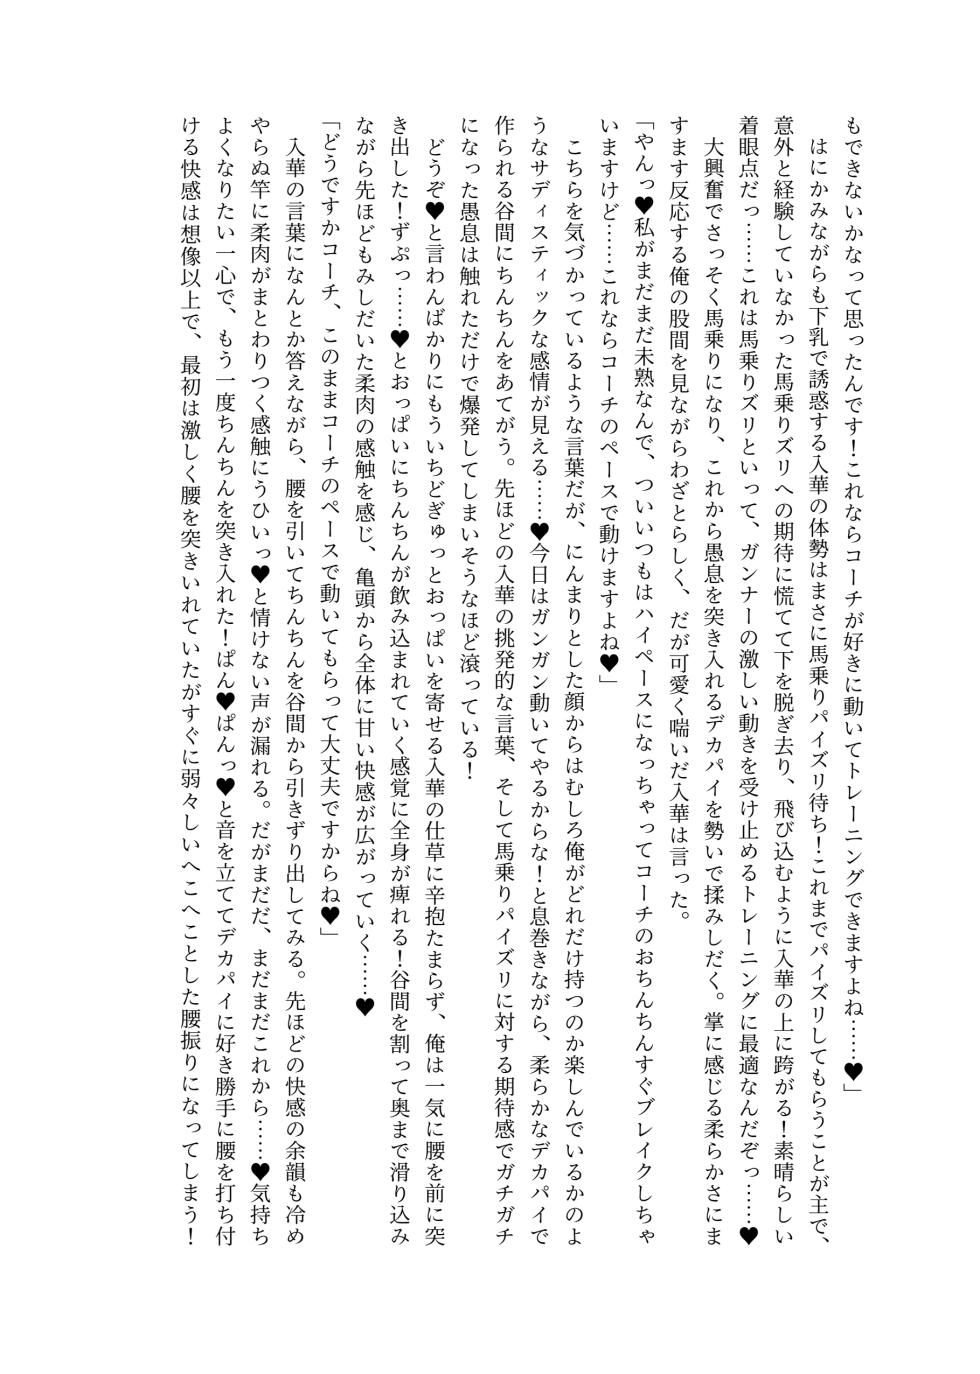 もできないかなって思ったんです！これならコーチが好きに動いてトレーニングできますよね……♥」
はにかみながらも下乳で誘惑する入華の体勢はまさに馬乗りパイズリ待ち！これまでパイズリしてもらうことが主で、
意外と経験していなかった馬乗りズリへの期待に慌てて下を脱ぎ去り、飛び込むように入華の上に跨がる！素晴らしい
着眼点だっ……これは馬乗りズリといって、ガンナーの激しい動きを受け止めるトレーニングに最適なんだぞっ……♥
大興奮でさっそく馬乗りになり、これから愚息を突き入れるデカパイを勢いで揉みしだく。掌に感じる柔らかさにま
すます反応する俺の股間を見ながらわざとらしく、だが可愛く喘いだ入華は言った。
「やんっ♥私がまだまだ未熟なんで、ついいつもはハイペースになっちゃってコーチのおちんちんすぐブレイクしちゃ
いますけど……これならコーチのペースで動けますよね♥」
こちらを気づかっているような言葉だが、にんまりとした顔からはむしろ俺がどれだけ持つのか楽しんでいるかのよ
うなサディスティックな感情が見える……♥今日はガンガン動いてやるからな！と息巻きながら、柔らかなデカパイで
作られる谷間にちんちんをあてがう。先ほどの入華の挑発的な言葉、そして馬乗りパイズリに対する期待感でガチガチ
になった愚息は触れただけで爆発してしまいそうなほど滾っている！
どうぞ♥と言わんばかりにもういちどぎゅっとおっぱいを寄せる入華の仕草に辛抱たまらず、俺は一気に腰を前に突
き出した！ずぷっ……♥とおっぱいにちんちんが飲み込まれていく感覚に全身が痺れる！谷間を割って奥まで滑り込み
ながら先ほどもみしだいた柔肉の感触を感じ、亀頭から全体に甘い快感が広がっていく……♥
「どうですかコーチ、このままコーチのペースで動いてもらって大丈夫ですからね♥」
入華の言葉になんとか答えながら、腰を引いてちんちんを谷間から引きずり出してみる。先ほどの快感の余韻も冷め
やらぬ竿に柔肉がまとわりつく感触にうひいっ♥と情けない声が漏れる。だがまだだ、まだまだこれから……♥気持ち
よくなりたい一心で、もう一度ちんちんを突き入れた！ぱん♥ぱんっ♥と音を立ててデカパイに好き勝手に腰を打ち付
ける快感は想像以上で、最初は激しく腰を突きいれていたがすぐに弱々しいへこへことした腰振りになってしまう！